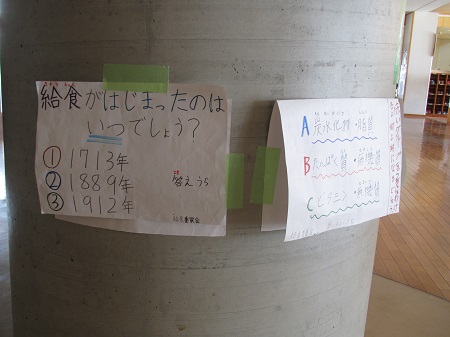 給食がはじまったのは
いつでしょう?
① 1713年
② 1889年
③ 1912年
答えうら
給食委員会
A 炭水化物・脂質
B たんぱく質・無機質
C ビタミン・無機質